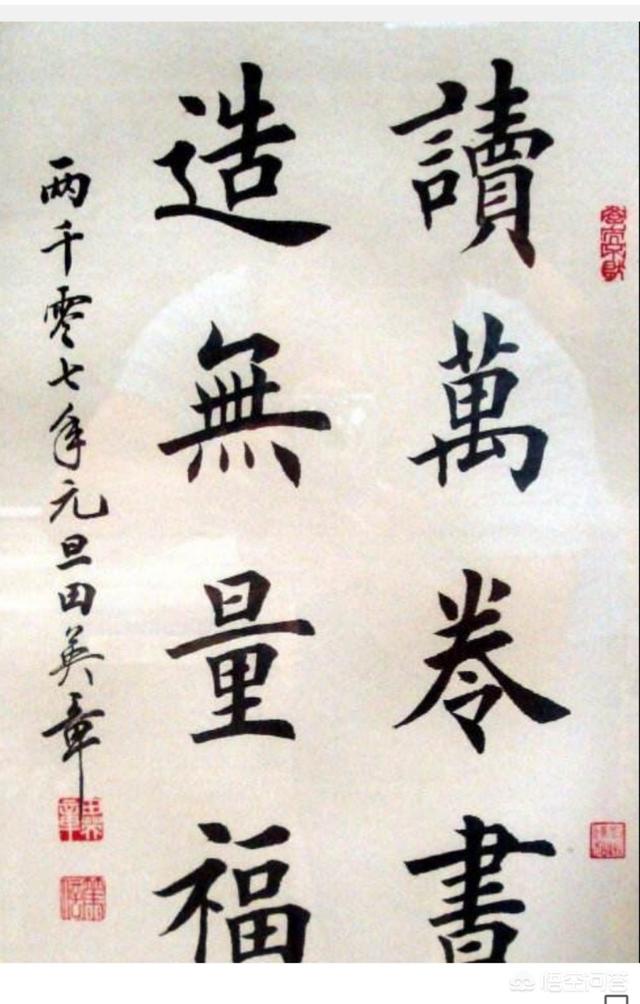 讀萬卷書
造無量福
两千零七年元旦田英章
悟空问答